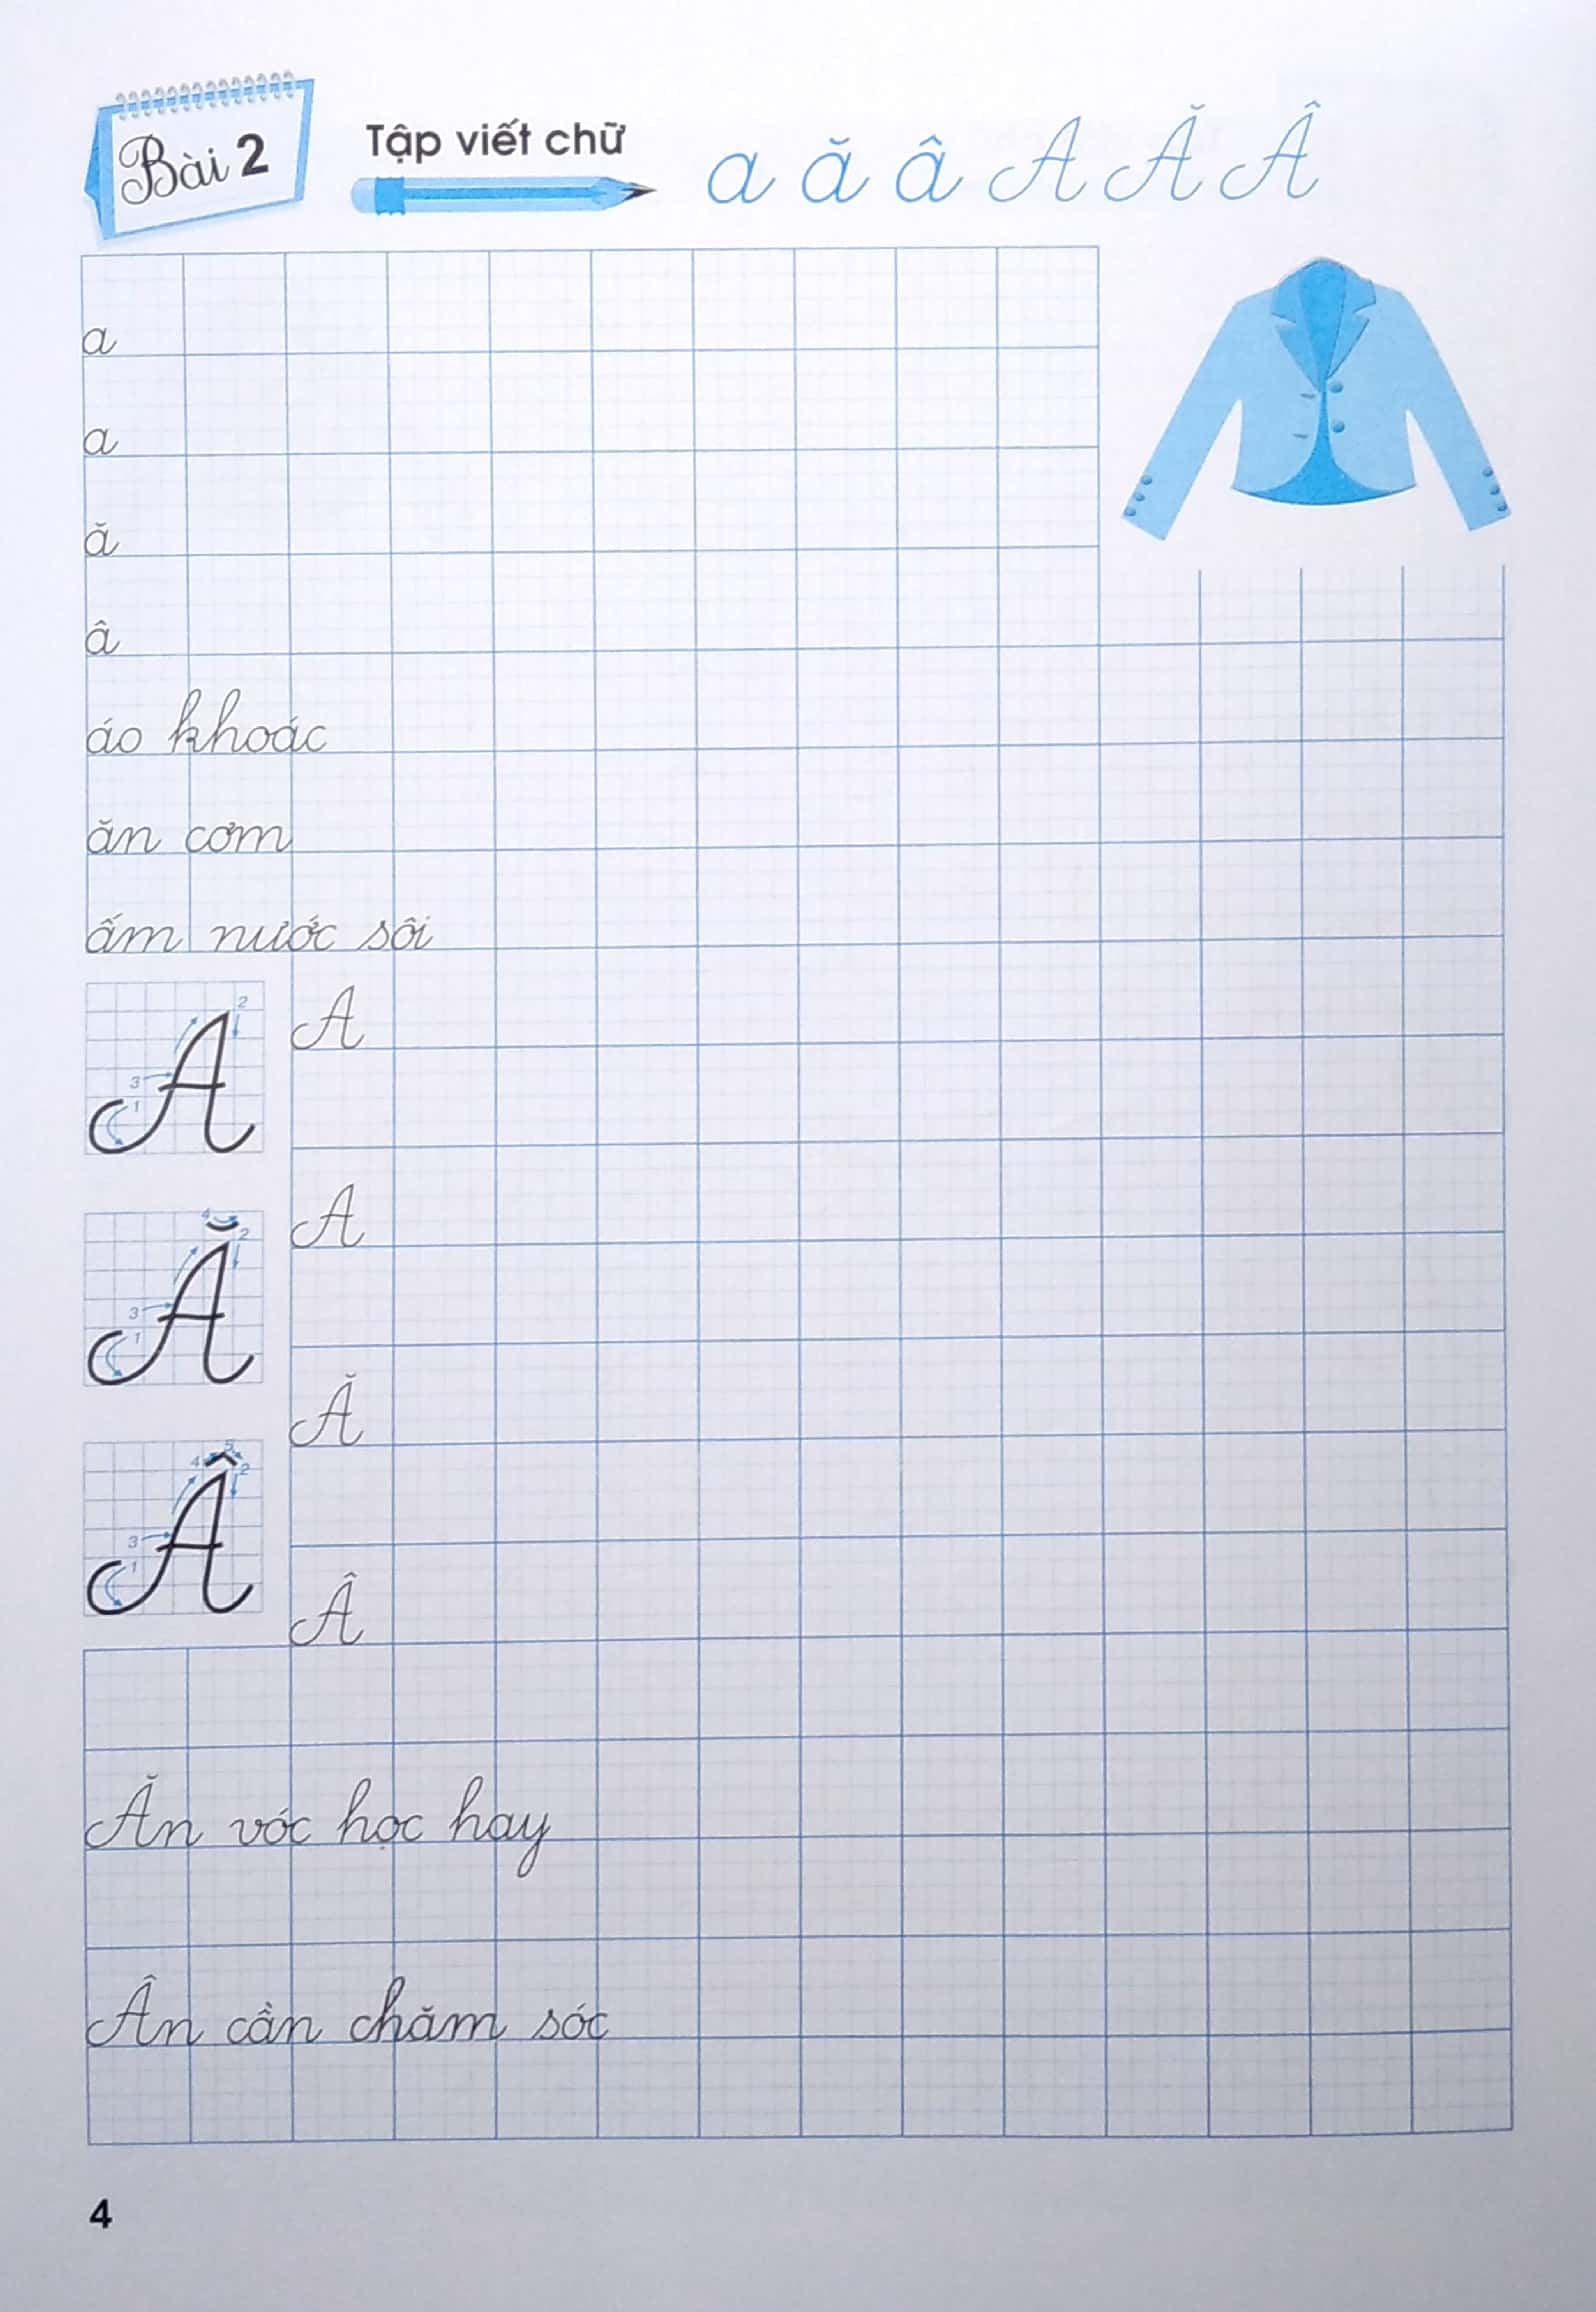 Bài 2
Tập viết chữ
a ă â A Ă Â
a
a
ă
â
áo khoác
ăn cơm
ấm nước sôi
1 2 3 A
A
A
1 2 3 4 Ă
Ă
1 2 3 4 5 Â
Â
Ăn vóc học hay
Ân cần chăm sóc
4